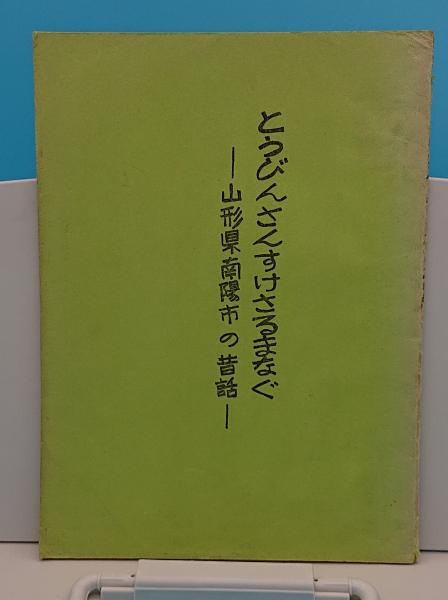 とうびんさんすけさるまなぐ
―山形県南陽市の昔話―